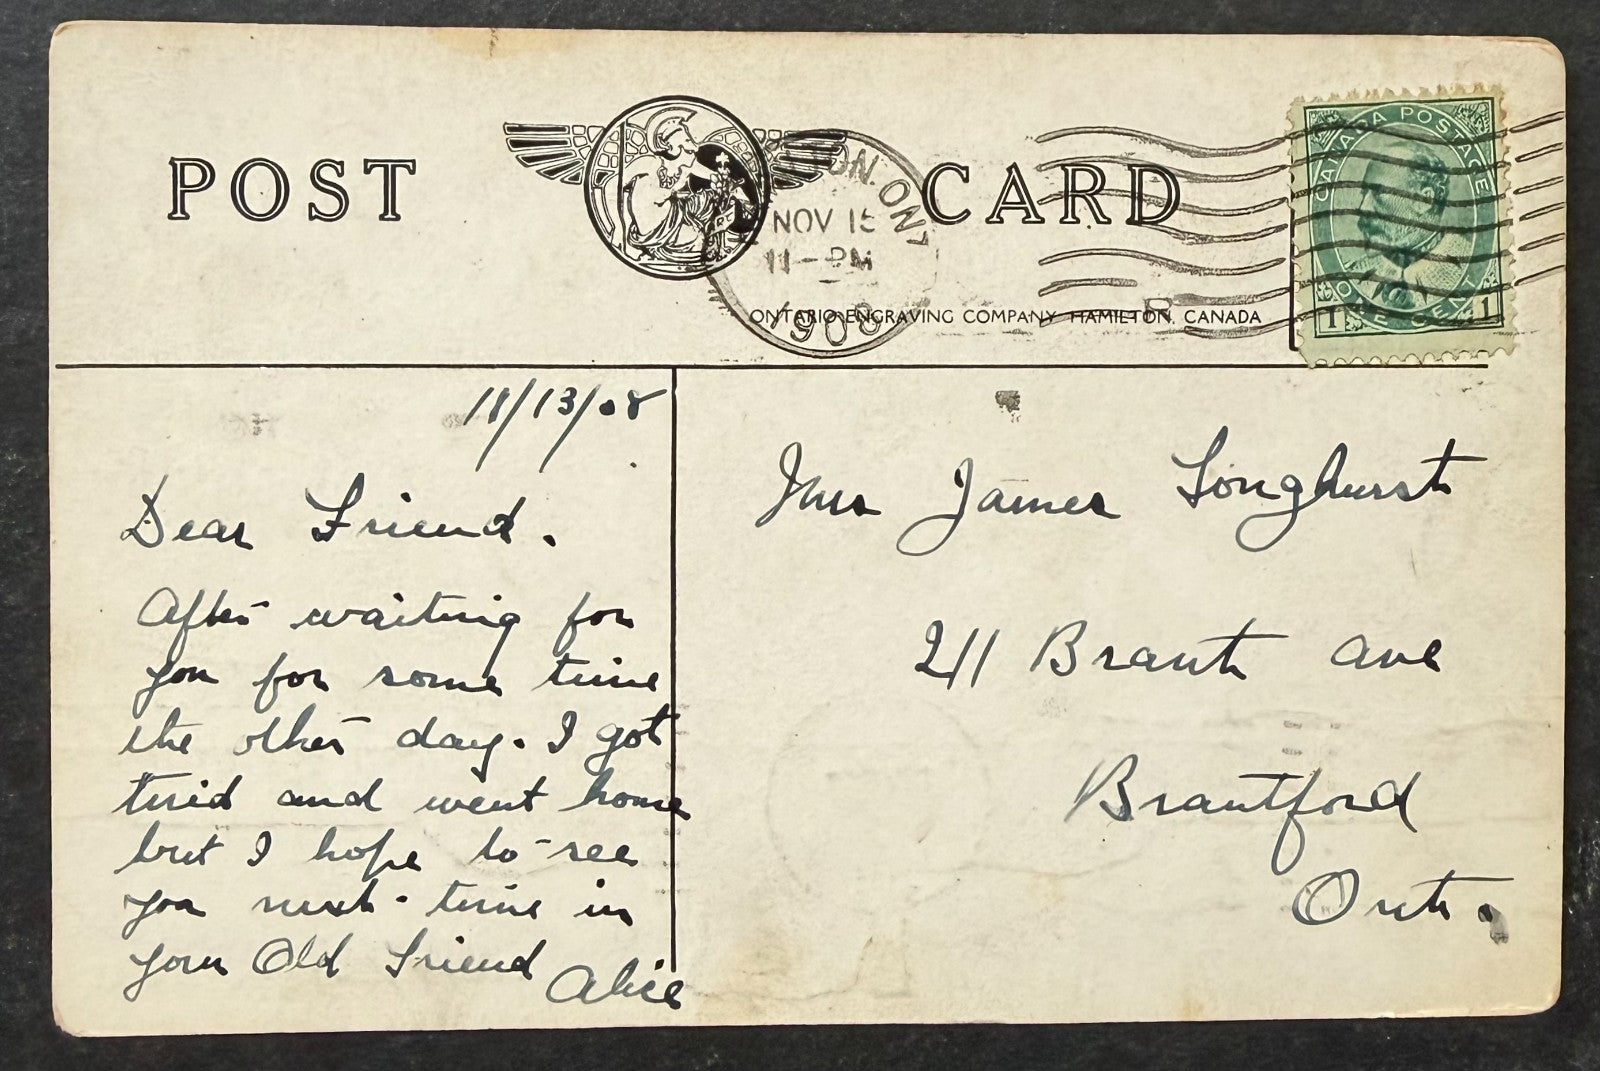 POST CARD
ON. ONT
NOV 15
11-PM
1908
CANADA POSTAGE
ONE CENT
1 1
ONTARIO ENGRAVING COMPANY HAMILTON, CANADA
11/13/08
Dear Friend.
After waiting for
you for some time
the other day. I got
tired and went home
but I hope to see
you next time in
your Old Friend
Alice
Mrs James Songhurst
211 Brant ave
Brantford
Ont.